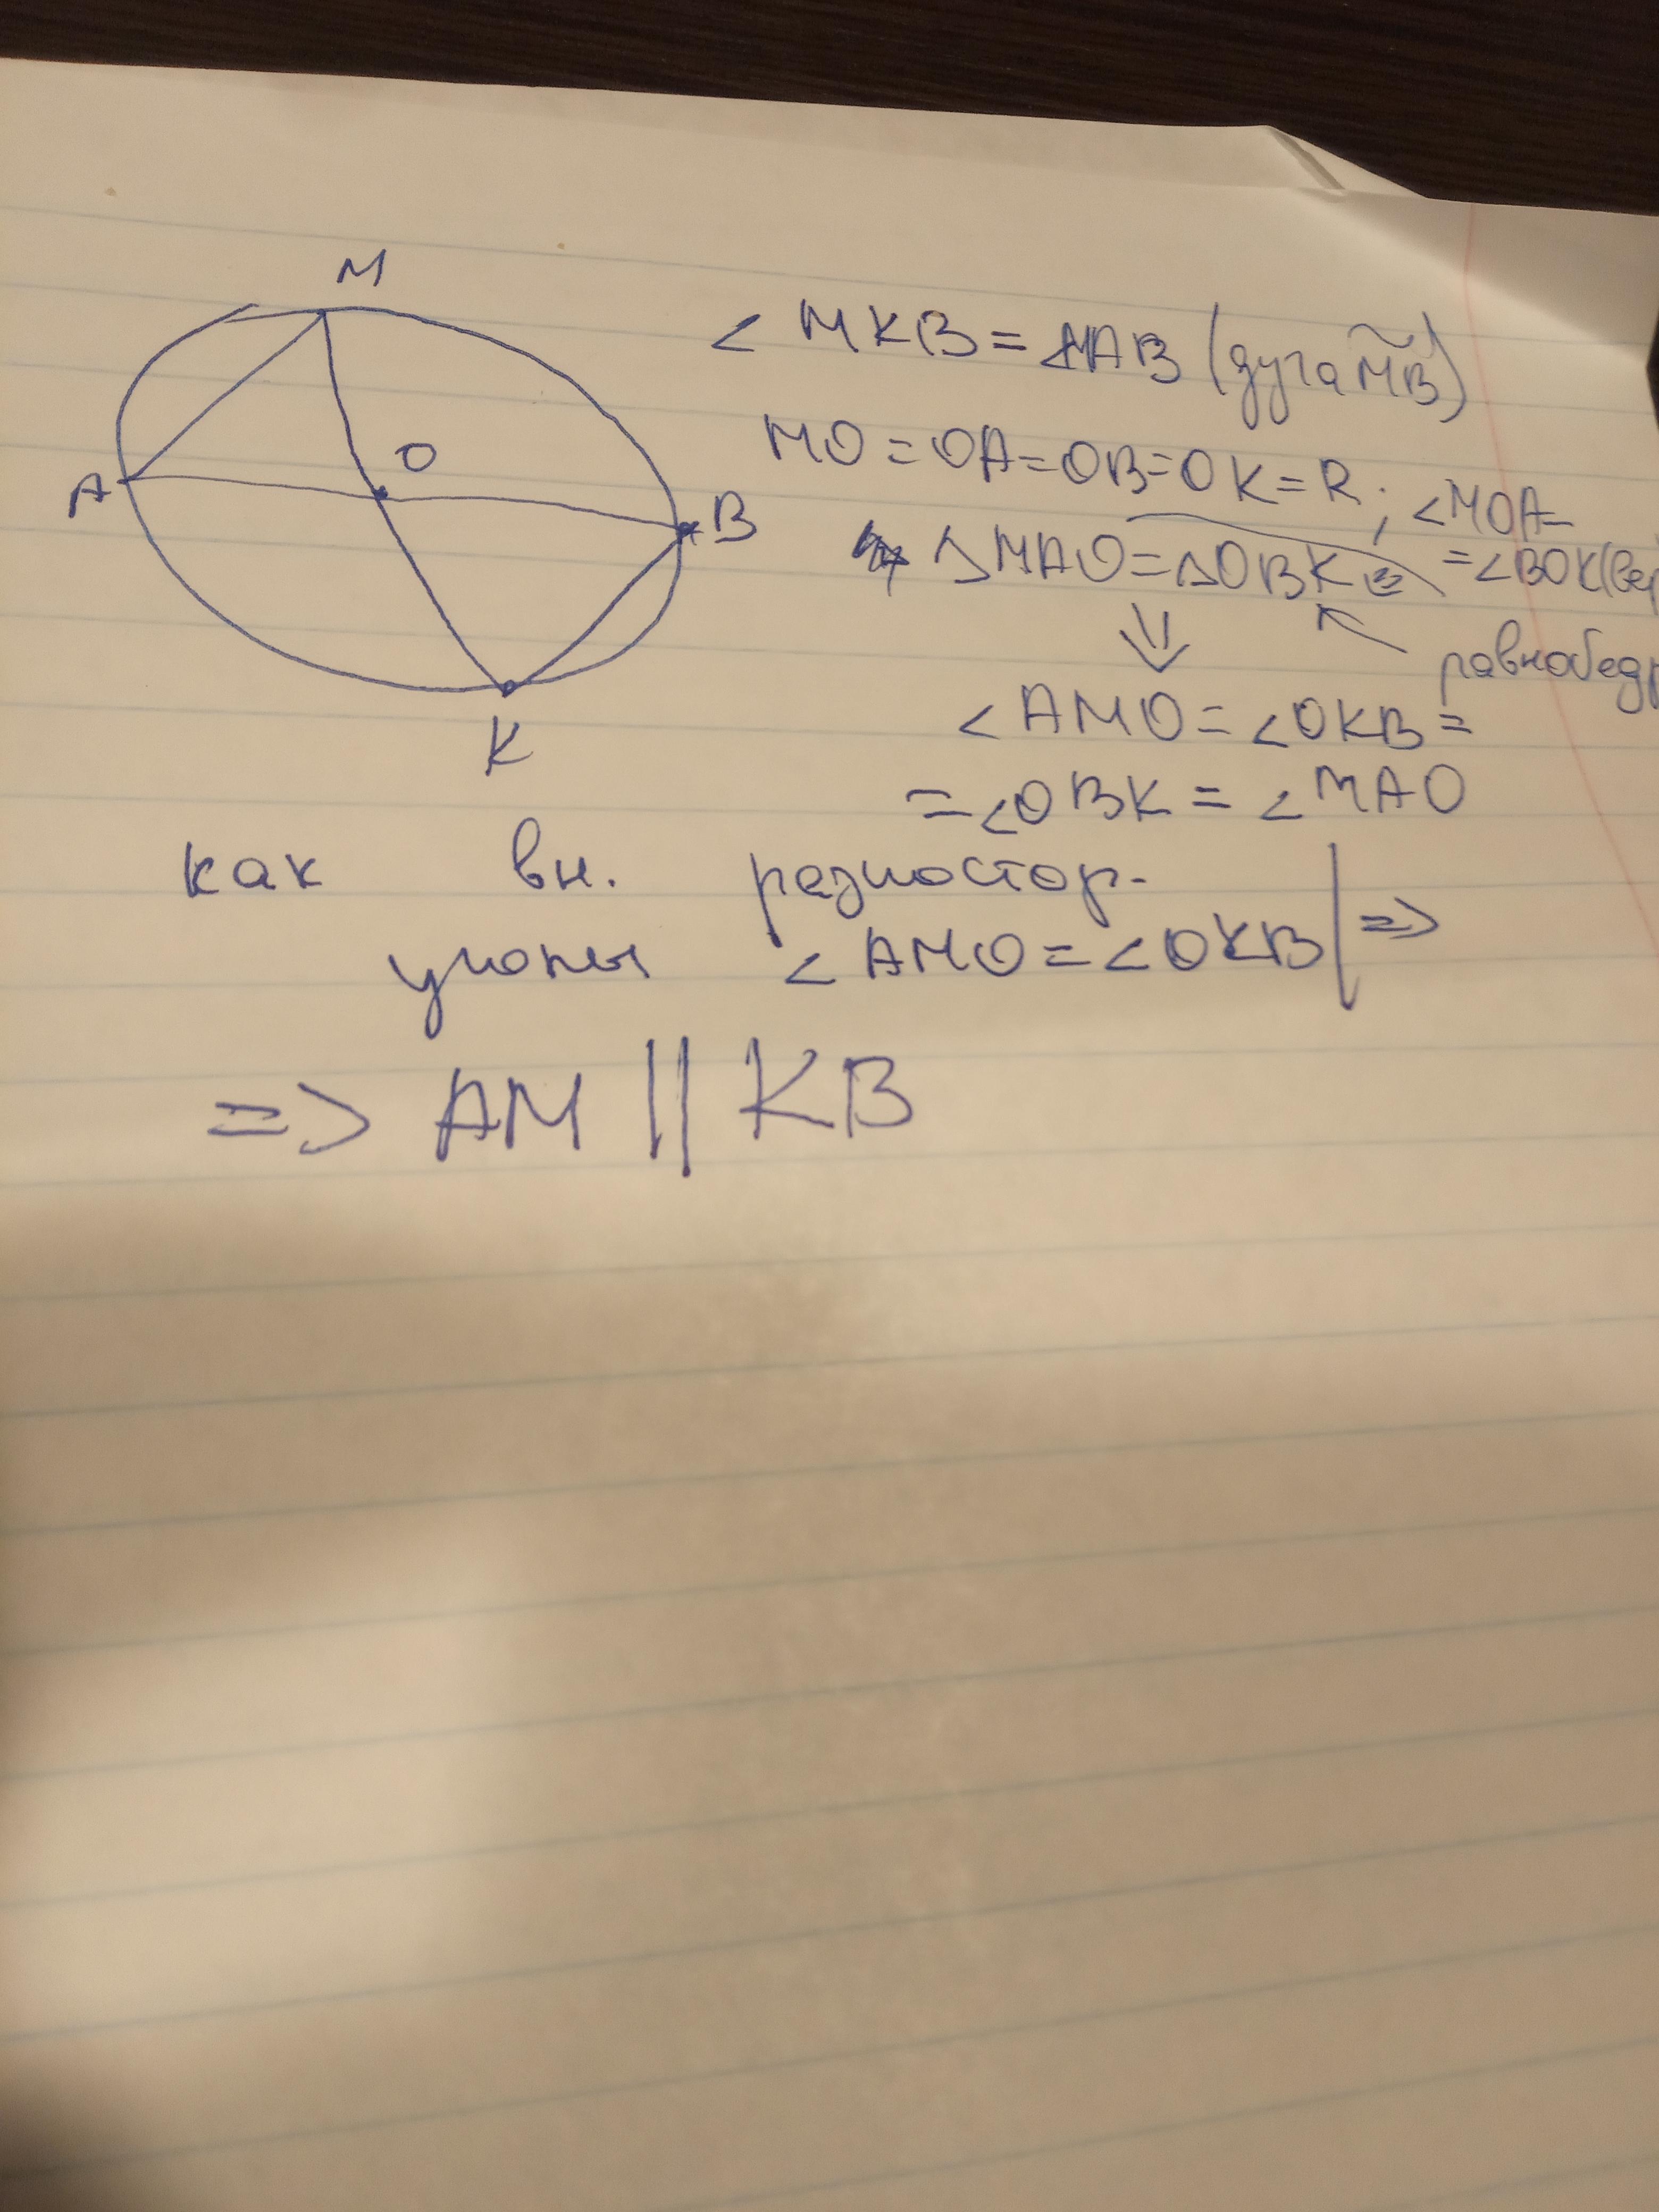 M
A
O
B
K
∠MKB = ∠MAB (дуга MB)
MO = OA = OB = OK = R; ∠MOA =
= ∠BOK (вер
△MAO = △OBK
равнобедр
⇓
∠AMO = ∠OKB =
= ∠OBK = ∠MAO
как вн. разностор.
∠AMO = ∠OKB | =>
=> AM || KB